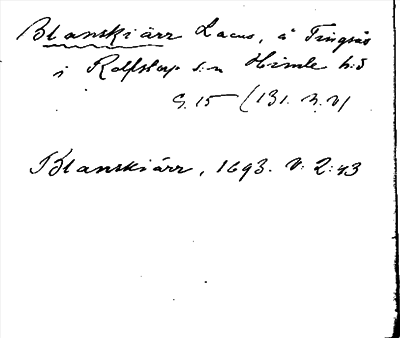 Blanskiärr Lacus, å Tingsås
i Rolfstorp s:n Himle h:d
G. 15 (131. n. V)
Blanskiärr, 1693. V: 2:43